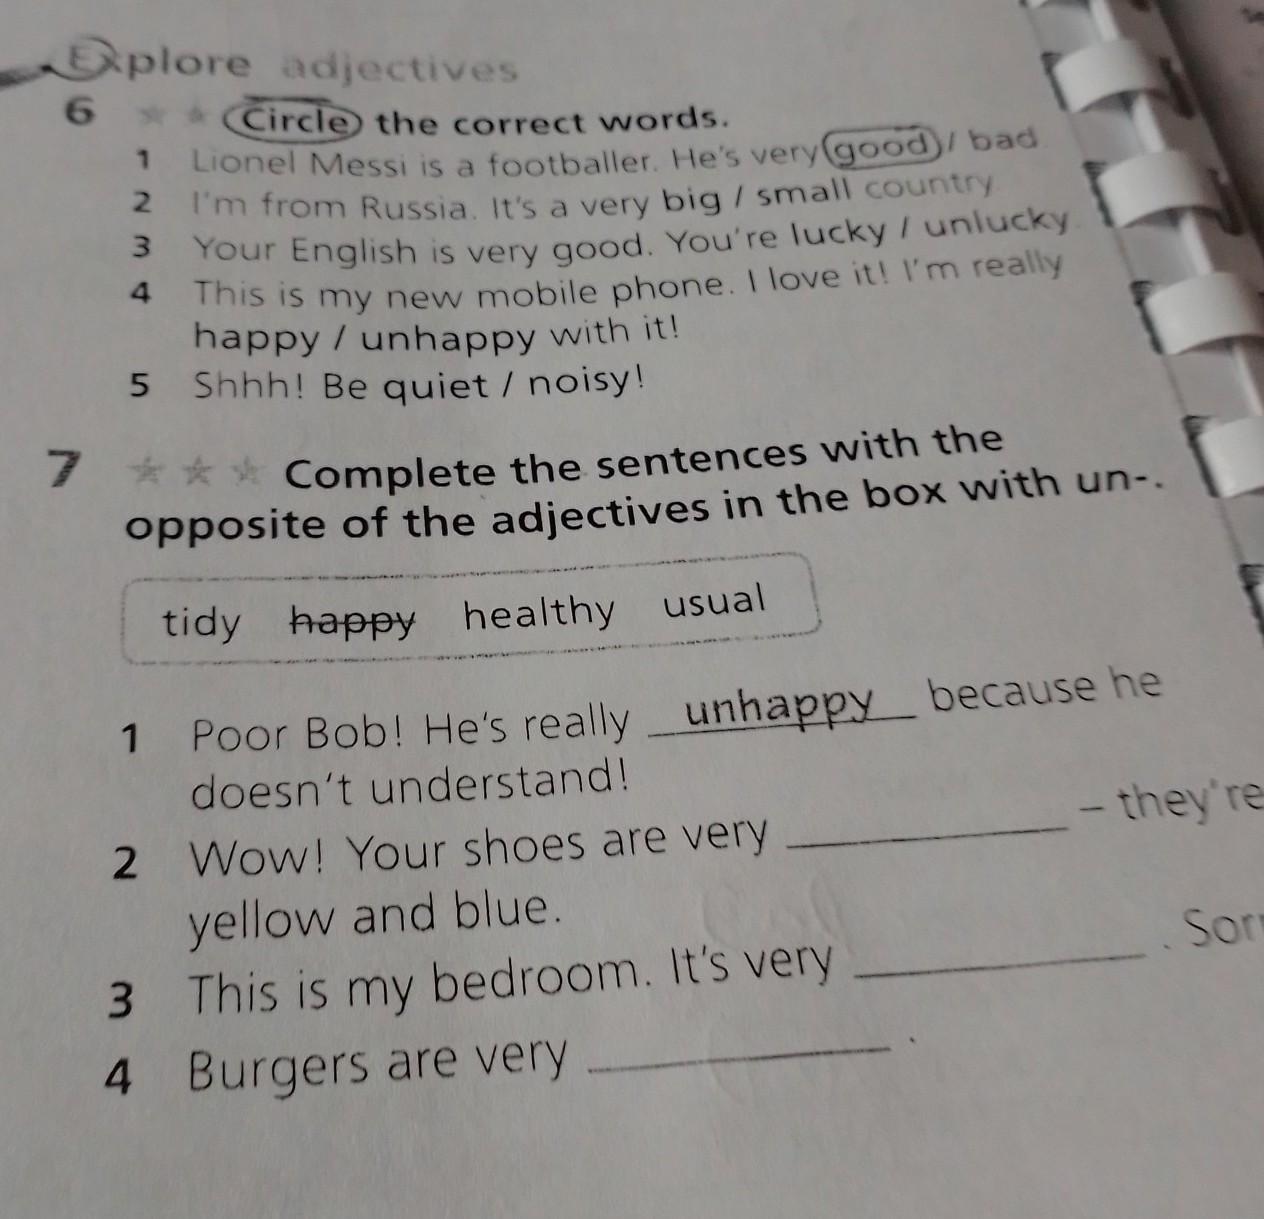 Explore adjectives
6 ★ ★ Circle the correct words.
1 Lionel Messi is a footballer. He's very good / bad.
2 I'm from Russia. It's a very big / small country.
3 Your English is very good. You're lucky / unlucky.
4 This is my new mobile phone. I love it! I'm really
happy / unhappy with it!
5 Shhh! Be quiet / noisy!
7 ★ ★ ★ Complete the sentences with the
opposite of the adjectives in the box with un-.
tidy happy healthy usual
1 Poor Bob! He's really unhappy because he
doesn't understand!
2 Wow! Your shoes are very ____________ – they're
yellow and blue.
3 This is my bedroom. It's very ____________ .
4 Burgers are very ____________ .